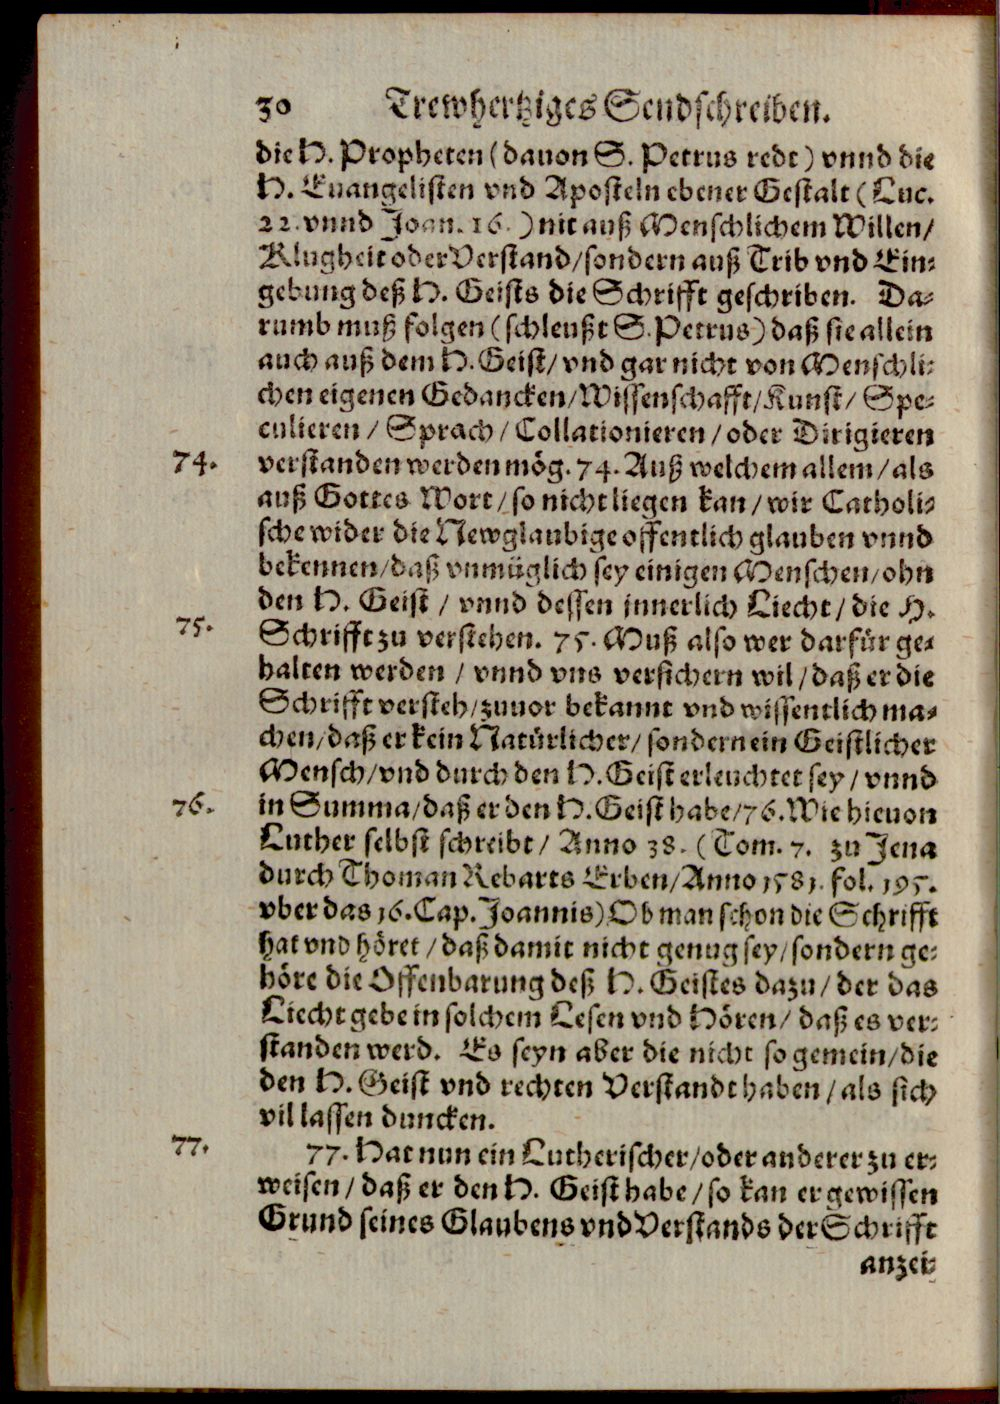 30 Trewhertziges Sendschreiben.
die H. Propheten (dauon S. Petrus redt) vnnd die
H. Euangelisten vnd Aposteln ebener Gestalt (Luc.
22. vnnd Joan. 16.) nit auß Menschlichem Willen/
Klugheit oder Verstand/sondern auß Trib vnd Ein-
gebung deß H. Geists die Schrifft geschriben. Da-
rumb muß folgen (schleußt S. Petrus) daß sie allein
auch auß dem H. Geist/ vnd gar nicht von Menschli-
chen eigenen Gedancken/Wissenschafft/Kunst/ Spe-
culieren / Sprach / Collationieren / oder Dirigieren
74. verstanden werden mög. 74. Auß welchem allem/ als
auß Gottes Wort/ so nicht liegen kan/ wir Catholi-
sche wider die Newglaubige offentlich glauben vnnd
bekennen/daß vnmüglich sey einigen Menschen/ohn
den H. Geist / vnnd dessen innerlich Liecht / die H.
75. Schrifft zu verstehen. 75. Muß also wer darfür ge-
halten werden / vnnd vns versichern wil / daß er die
Schrifft versteh/zuuor bekannt vnd wissentlich ma-
chen/daß er kein Natürlicher/ sondern ein Geistlicher
Mensch/vnd durch den H. Geist erleuchtet sey / vnnd
76. in Summa/daß er den H. Geist habe/76. Wie hieuon
Luther selbst schreibt / Anno 38. (Tom. 7. zu Jena
durch Thoman Rebarts Erben/Anno 1581. fol. 195.
vber das 16. Cap. Joannis) Ob man schon die Schrifft
hat vnd höret / daß damit nicht genug sey/sondern ge-
höre die Offenbarung deß H. Geistes dazu / der das
Liecht gebe in solchem Lesen vnd Hören/ daß es ver-
standen werd. Es seyn aber die nicht so gemein/die
den H. Geist vnd rechten Verstandt haben / als sich
vil lassen duncken.
77. 77. Hat nun ein Lutherischer/oder anderer zu er-
weisen / daß er den H. Geist habe / so kan er gewissen
Grund seines Glaubens vnd Verstands der Schrifft
anzei-